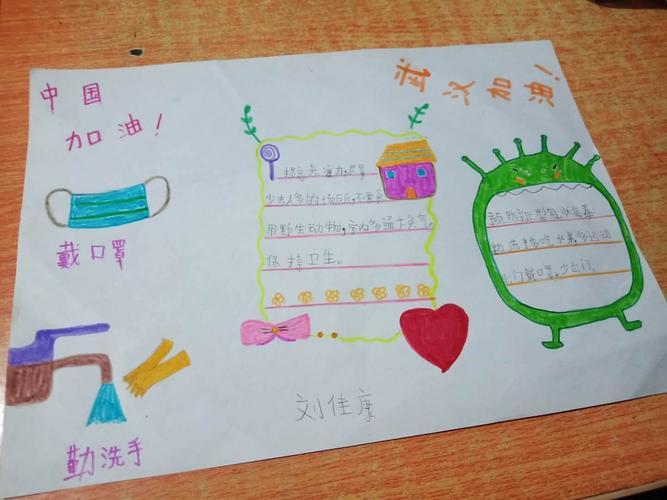 中国
加油！
武汉加油！
戴口罩
少去人多的场所，不要
用野生动物，室内多通换气
保持卫生。
勤洗手
刘佳康
预防新型冠状病毒
勤洗手多吃水果多运动
门戴口罩，少出门。